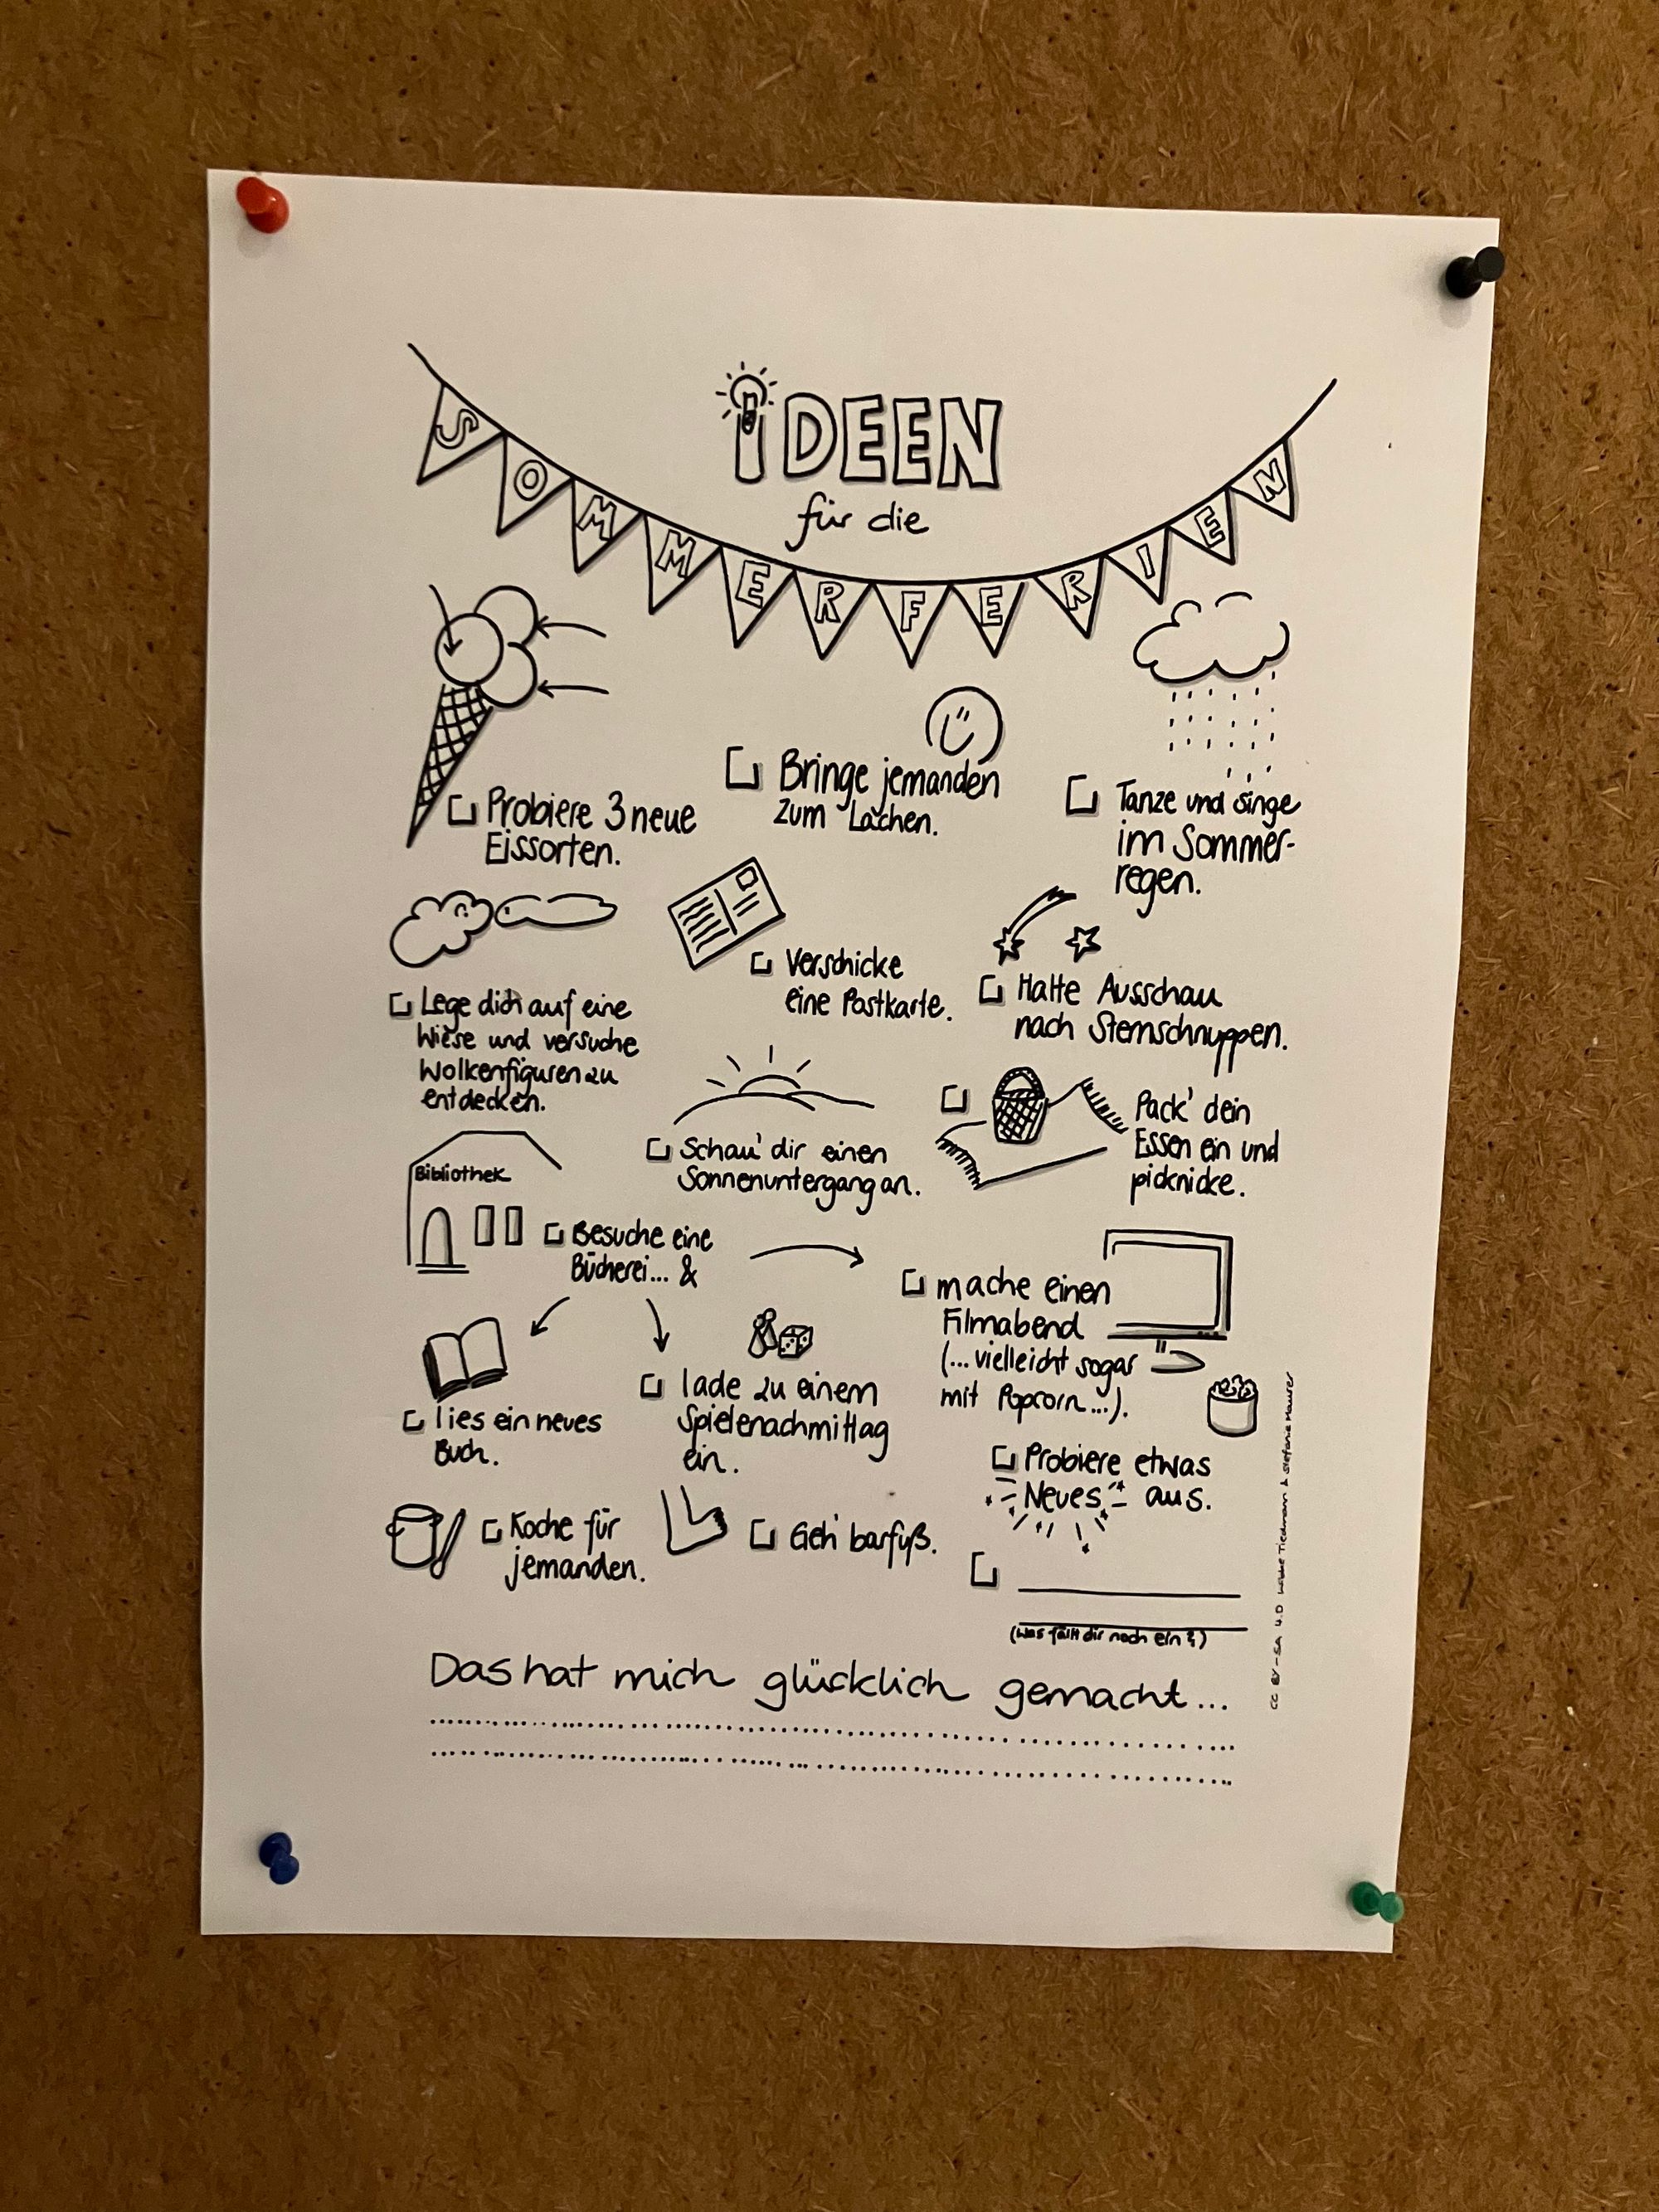 iDEEN
für die
SOMMERFERIEN
Probiere 3 neue
Eissorten.
Bringe jemanden
zum Lachen.
Tanze und singe
im Sommer-
regen.
Lege dich auf eine
Wiese und versuche
Wolkenfiguren zu
entdecken.
Verschicke
eine Postkarte.
Halte Ausschau
nach Sternschnuppen.
Schau' dir einen
Sonnenuntergang an.
Pack' dein
Essen ein und
picknicke.
Bibliothek
Besuche eine
Bücherei... &
mache einen
Filmabend
(... vielleicht sogar
mit Popcorn...).
lies ein neues
Buch.
lade zu einem
Spielenachmittag
ein.
Probiere etwas
Neues aus.
Koche für
jemanden.
Geh' barfuß.
(Was fällt dir noch ein?)
Das hat mich glücklich gemacht...
CC BY-SA 4.0 Wibke Tiedmann & Stefanie Maurer